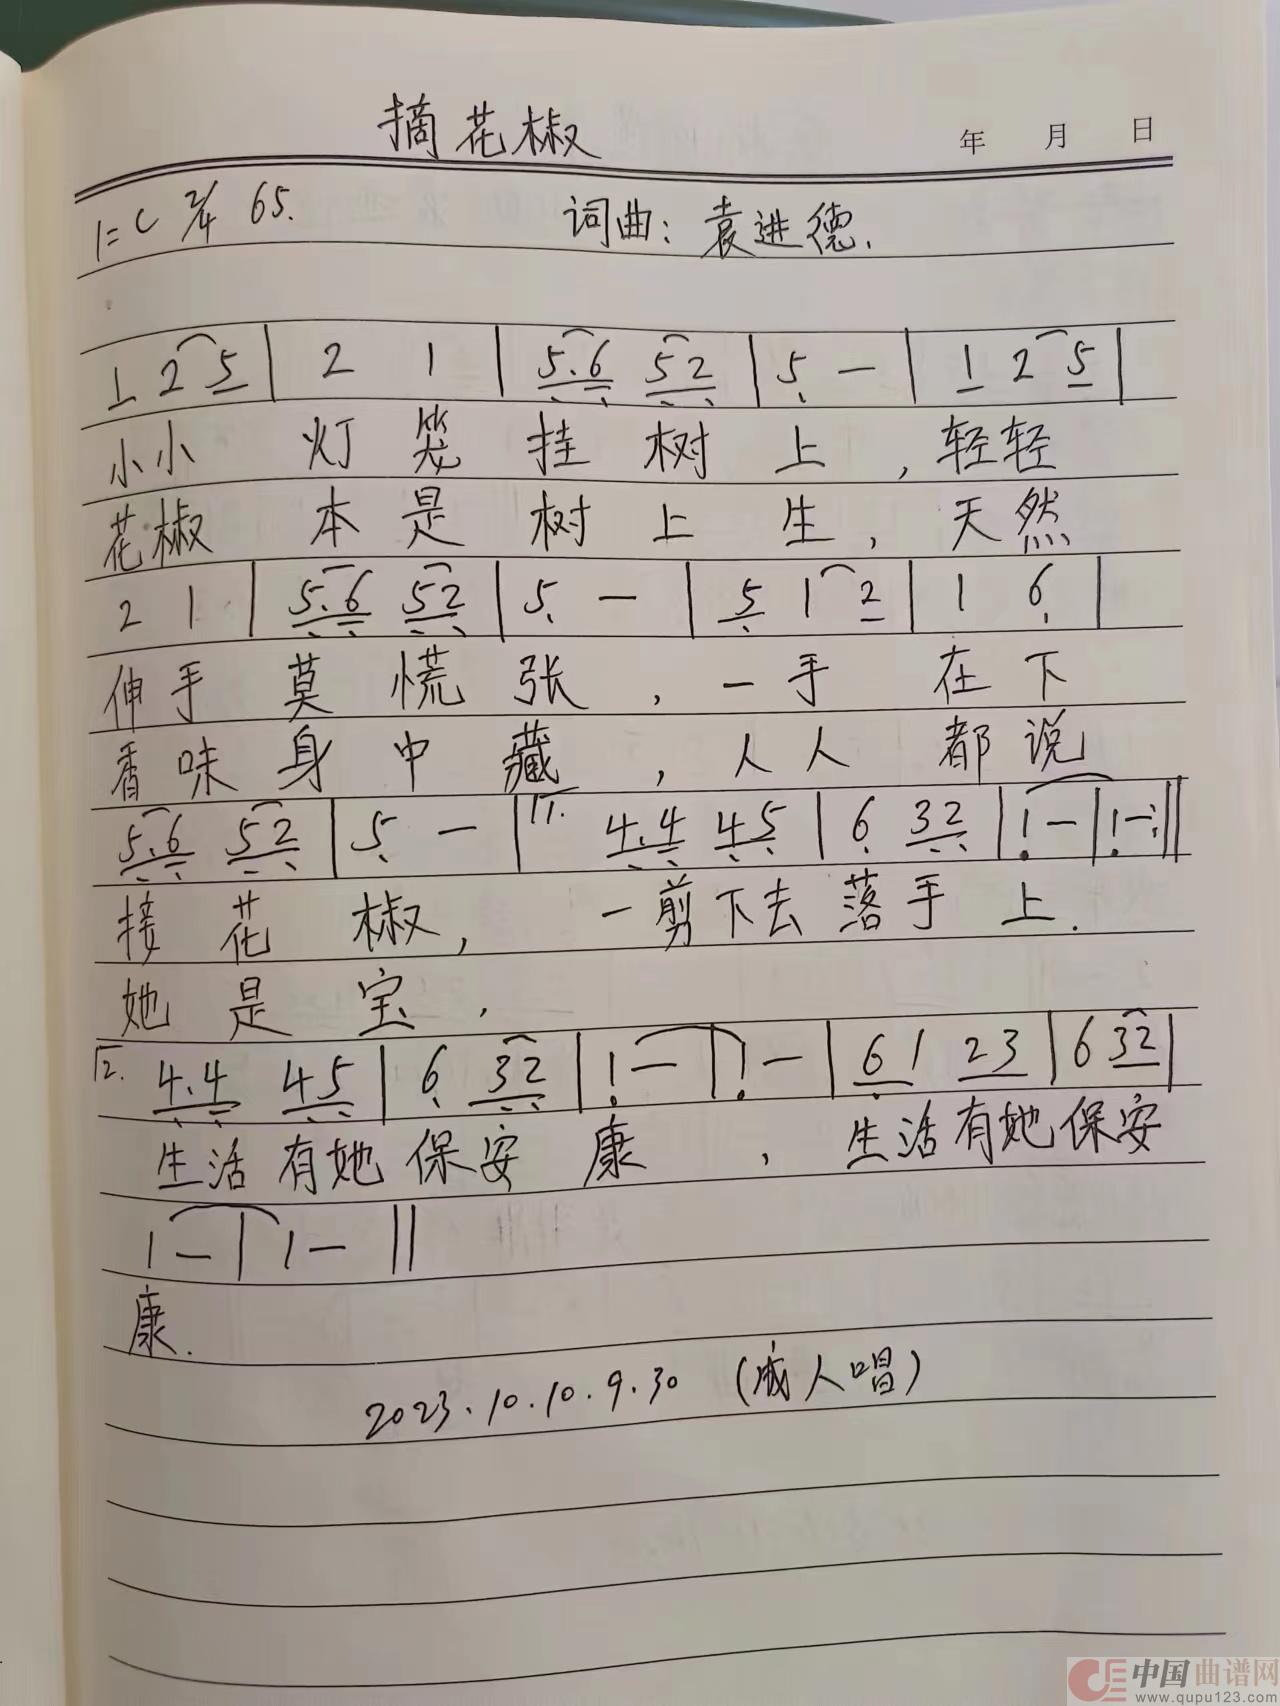 摘花椒
年 月 日
1=C 2/4 65.
词曲：袁进德.
1 2 5 | 2 1 | 5.6 52 | 5 — | 1 2 5 |
小小 灯笼挂树上，轻轻
花椒 本是树上生，天然
2 1 | 5.6 52 | 5 — | 5 1 2 | 1 6 |
伸手莫慌张，一手 在下
香味身中藏，人人 都说
5.6 52 | 5 — | 1. 4.4 45 | 6 32 | 1 — | 1 — :||
接花椒，一剪下去落手上.
她是宝，
2. 4.4 45 | 6 32 | 1 — | 1 — | 61 23 | 6 32 |
生活有她保安康，生活有她保安
1 — | 1 — ||
康.
2023.10.10.9.30 (成人唱)
中国曲谱网
www.qupu123.com